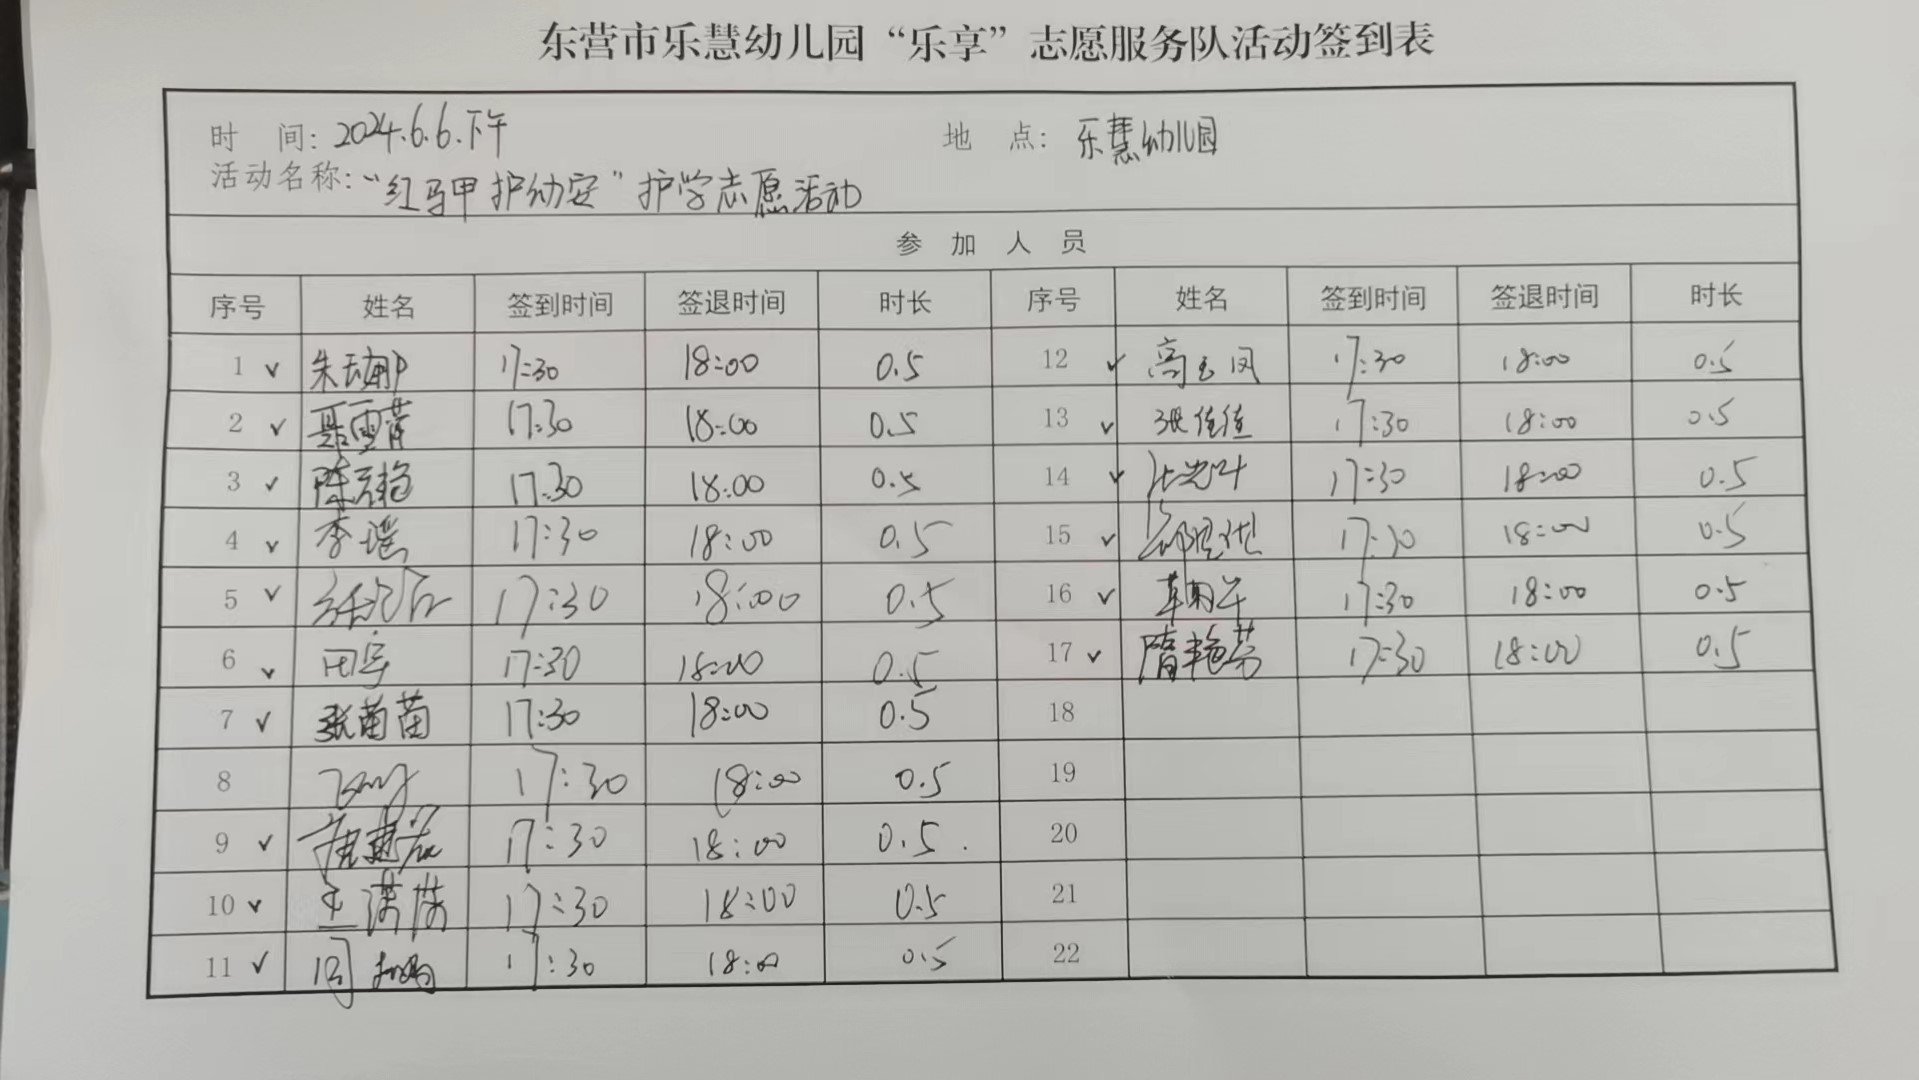 东营市乐慧幼儿园“乐享”志愿服务队活动签到表
时 间: 2024.6.6.下午 地 点: 乐慧幼儿园
活动名称: “红马甲护幼安”护学志愿活动
参 加 人 员
序号 姓名 签到时间 签退时间 时长 序号 姓名 签到时间 签退时间 时长
1 ✓ 17:30 18:00 0.5 12 ✓ 高玉凤 17:30 18:00 0.5
2 ✓ 聂雪菁 17:30 18:00 0.5 13 ✓ 张佳佳 17:30 18:00 0.5
3 ✓ 17:30 18:00 0.5 14 ✓ 17:30 18:00 0.5
4 ✓ 李瑶 17:30 18:00 0.5 15 ✓ 17:30 18:00 0.5
5 ✓ 17:30 18:00 0.5 16 ✓ 17:30 18:00 0.5
6 ✓ 田宇 17:30 18:00 0.5 17 ✓ 隋艳芬 17:30 18:00 0.5
7 ✓ 张苗苗 17:30 18:00 0.5 18
8 17:30 18:00 0.5 19
9 ✓ 17:30 18:00 0.5 20
10 ✓ 17:30 18:00 0.5 21
11 ✓ 17:30 18:00 0.5 22